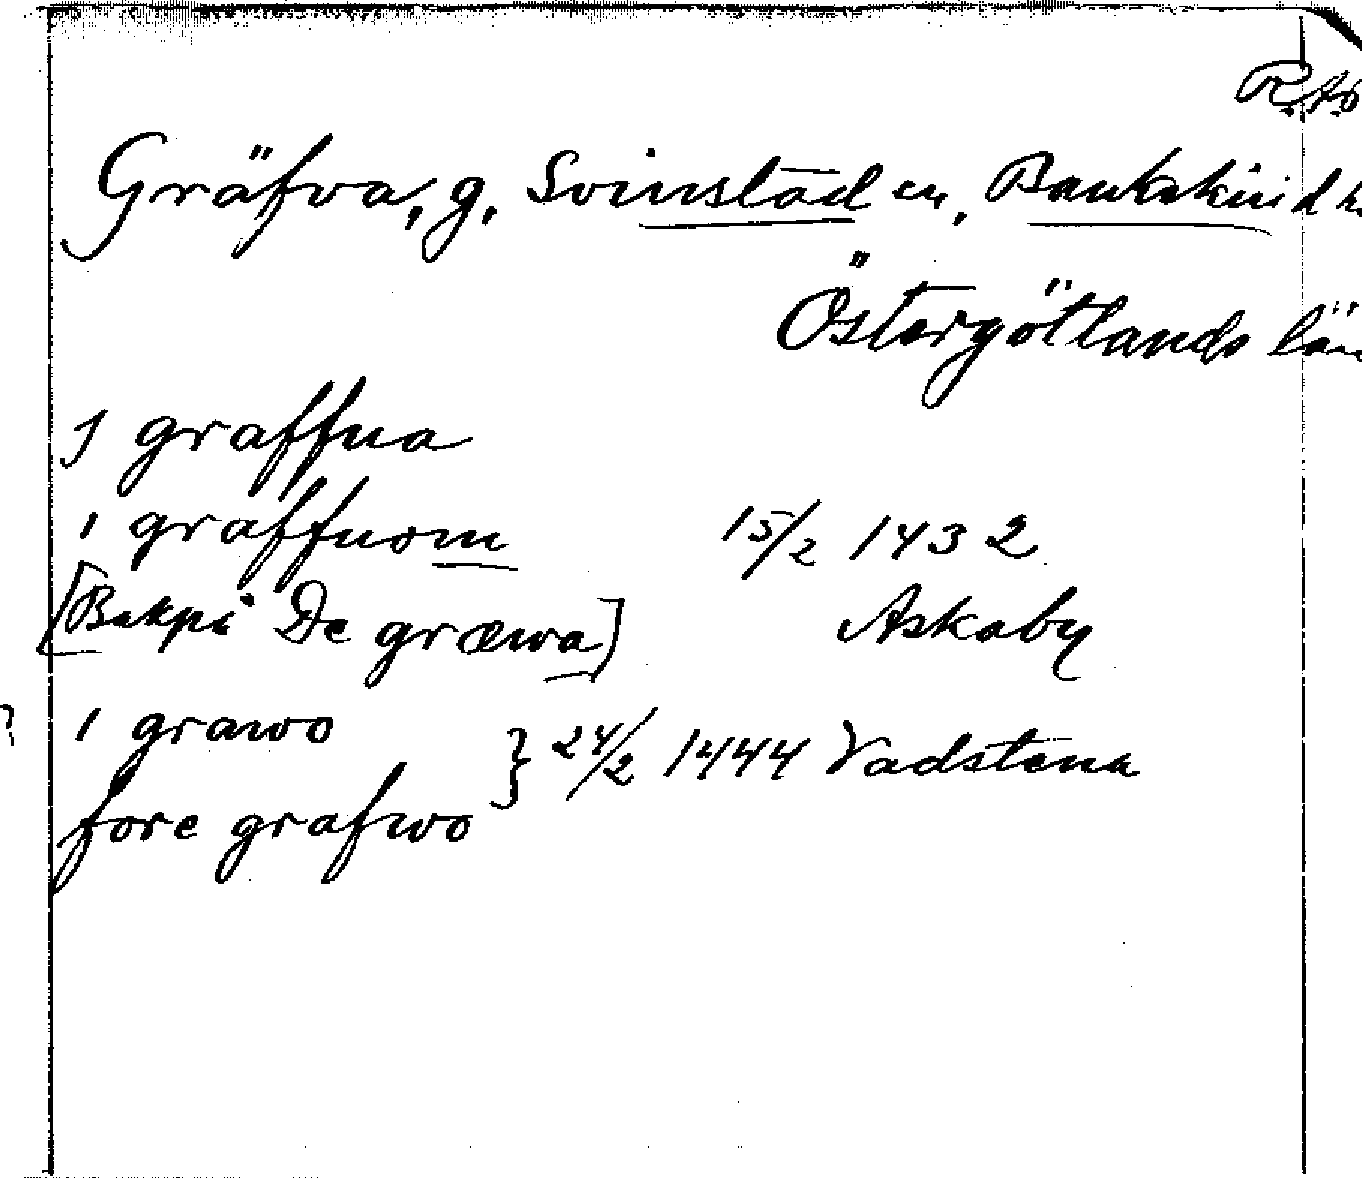 RAp
Gräfva, g. Svinstad sn, Bankekind h
Östergötlands län
J graffua
i graffuom 15/2 1432
[Bakpå De græwa] Askaby
? i grawo
} 24/2 1444 Vadstena
fore grafwo